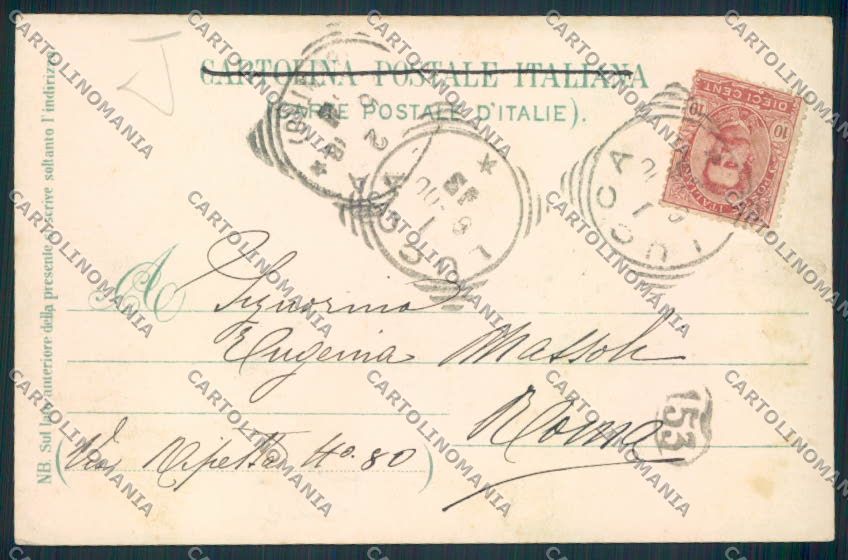 CARTOLINA POSTALE ITALIANA
(CARTE POSTALE D'ITALIE).
NB. Sul lato anteriore della presente si scrive soltanto l'indirizzo
DIECI CENT
10
10
LUCCA
LUCCA
A
Signorina
Eugenia Massoli
Roma
(Via Ripetta No. 80)
153
CARTOLINOMANIA